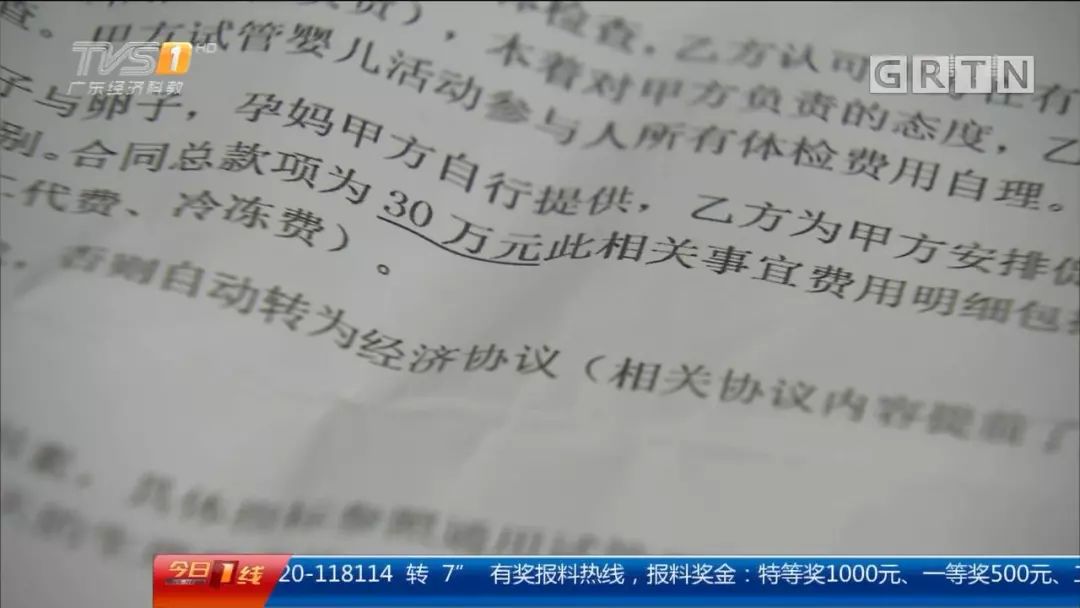 体检查，乙方认可
查。甲方试管婴儿活动参与人所有体检费用自理。
，本着对甲方负责的态度，乙
子与卵子，孕妈甲方自行提供，乙方为甲方安排
别。合同总款项为30万元此相关事宜费用明细包
代费、冷冻费）。
，否则自动转为经济协议（相关协议内容提前了
，具体指标参照通用试
TVS1 HD
广东经济科教
GRTN
今日1线
20-118114 转 7” 有奖报料热线，报料奖金：特等奖1000元、一等奖500元、